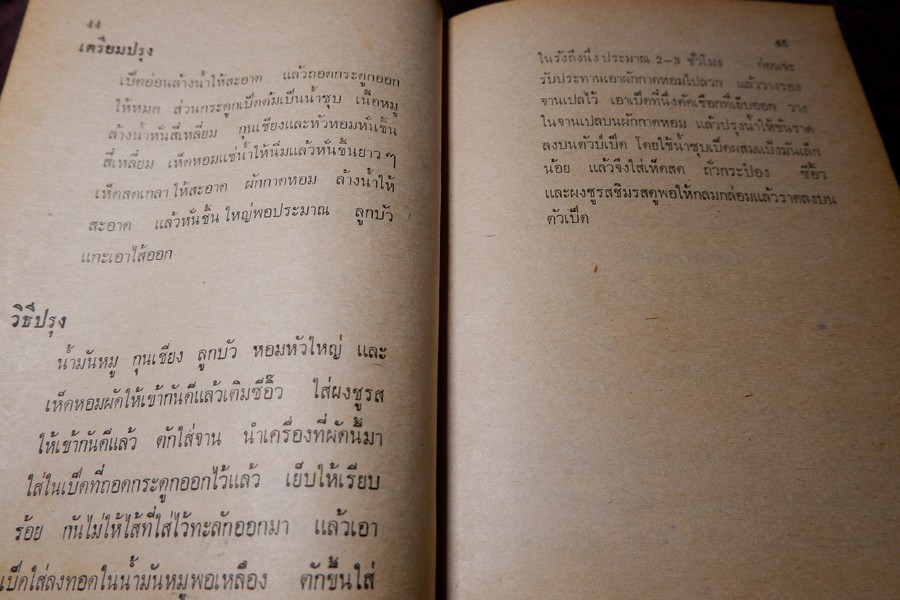 44
เตรียมปรุง
เป็ดอ่อนล้างน้ำให้สะอาด แล้วถอดกระดูกออก
ให้หมด ส่วนกระดูกเป็ดต้มเป็นน้ำซุบ เนื้อหมู
ล้างน้ำหั่นสี่เหลี่ยม กุนเชียงและหัวหอมหั่นชิ้น
สี่เหลี่ยม เห็ดหอมแช่น้ำให้นิ่มแล้วหั่นชิ้นยาว ๆ
เห็ดสดเกลาให้สะอาด ผักกาดหอม ล้างน้ำให้
สะอาด แล้วหั่นชิ้นใหญ่พอประมาณ ลูกบัว
แกะเอาไส้ออก
วิธีปรุง
น้ำมันหมู กุนเชียง ลูกบัว หอมหัวใหญ่ และ
เห็ดหอมผัดให้เข้ากันดีแล้วเติมซีอิ๊ว ใส่ผงชูรส
ให้เข้ากันดีแล้ว ตักใส่จาน นำเครื่องที่ผัดนี้มา
ใส่ในเป็ดที่ถอดกระดูกออกไว้แล้ว เย็บให้เรียบ
ร้อย กันไม่ให้ไส้ที่ใส่ไว้ทะลักออกมา แล้วเอา
เป็ดใส่ลงทอดในน้ำมันหมูพอเหลือง ตักขึ้นใส่
45
ในรังถึงนึ่งประมาณ 2-3 ชั่วโมง ก่อนจะ
รับประทานเอาผักกาดหอมไปลวก แล้ววางรอง
จานเปลไว้ เอาเป็ดที่นึ่งตัดเชือกที่เย็บออก วาง
ในจานเปลบนผักกาดหอม แล้วปรุงน้ำให้ข้นราด
ลงบนตัวเป็ด โดยใช้น้ำซุบเป็ดผสมแป้งมันเล็ก
น้อย แล้วจึงใส่เห็ดสด ถั่วกระป๋อง ซีอิ๊ว
และผงชูรสชิมรสดูพอให้กลมกล่อมแล้วราดลงบน
ตัวเป็ด